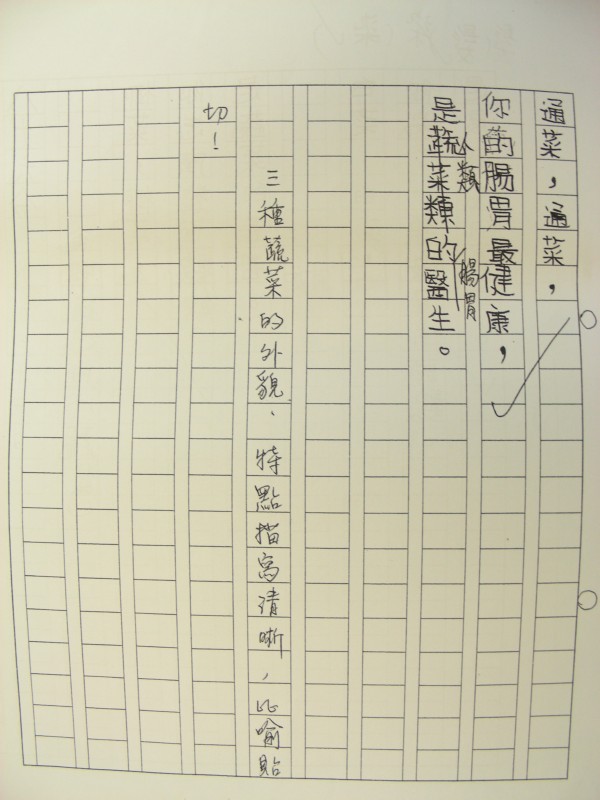 通菜，通菜，
你的腸胃最健康，
人類
腸胃
是蔬菜類的醫生。
三種蔬菜的外貌、特點描寫清晰，比喻貼
切！